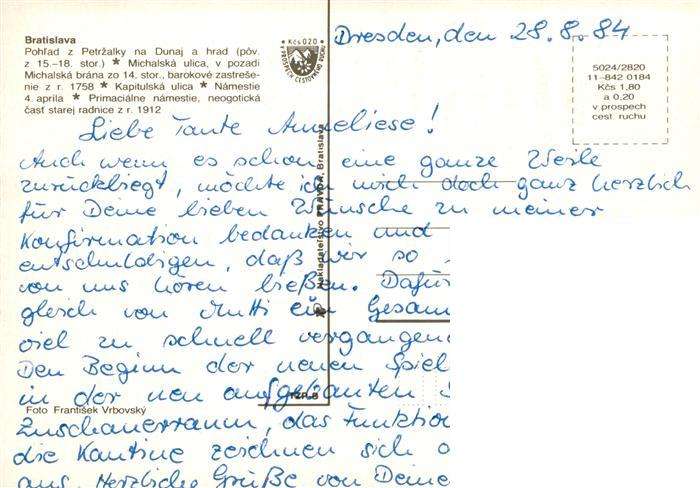 Bratislava
Pohľad z Petržalky na Dunaj a hrad (pôv.
z 15.–18. stor.) ★ Michalská ulica, v pozadí
Michalská brána zo 14. stor., barokové zastreše-
nie z r. 1758 ★ Kapitulská ulica ★ Námestie
4. apríla ★ Primaciálne námestie, neogotická
časť starej radnice z r. 1912
Kčs 0,20
V PROSPECH CESTOVNÉHO RUCHU
Dresden, den 28.8.84
5024/2820
11–842 0184
Kčs 1,80
a 0,20
v prospech
cest. ruchu
Liebe Tante Anneliese!
Auch wenn es schon eine ganze Weile
zurückliegt, möchte ich mich doch ganz herzlich
für Deine lieben Wünsche zu meiner
Konfirmation bedanken und
entschuldigen, daß wir so
von uns hören ließen. Dafür
gleich von Mutti ein Gesam
viel zu schnell vergangen
Den Beginn der neuen Spiel
in der neu aufgebauten
Zuschauerraum, das Funktion
die Kantine zeichnen sich
aus. Herzliche Grüße von Deine
Nakladateľstvo PRAVDA, Bratislava
TZP-B
Foto František Vrbovský